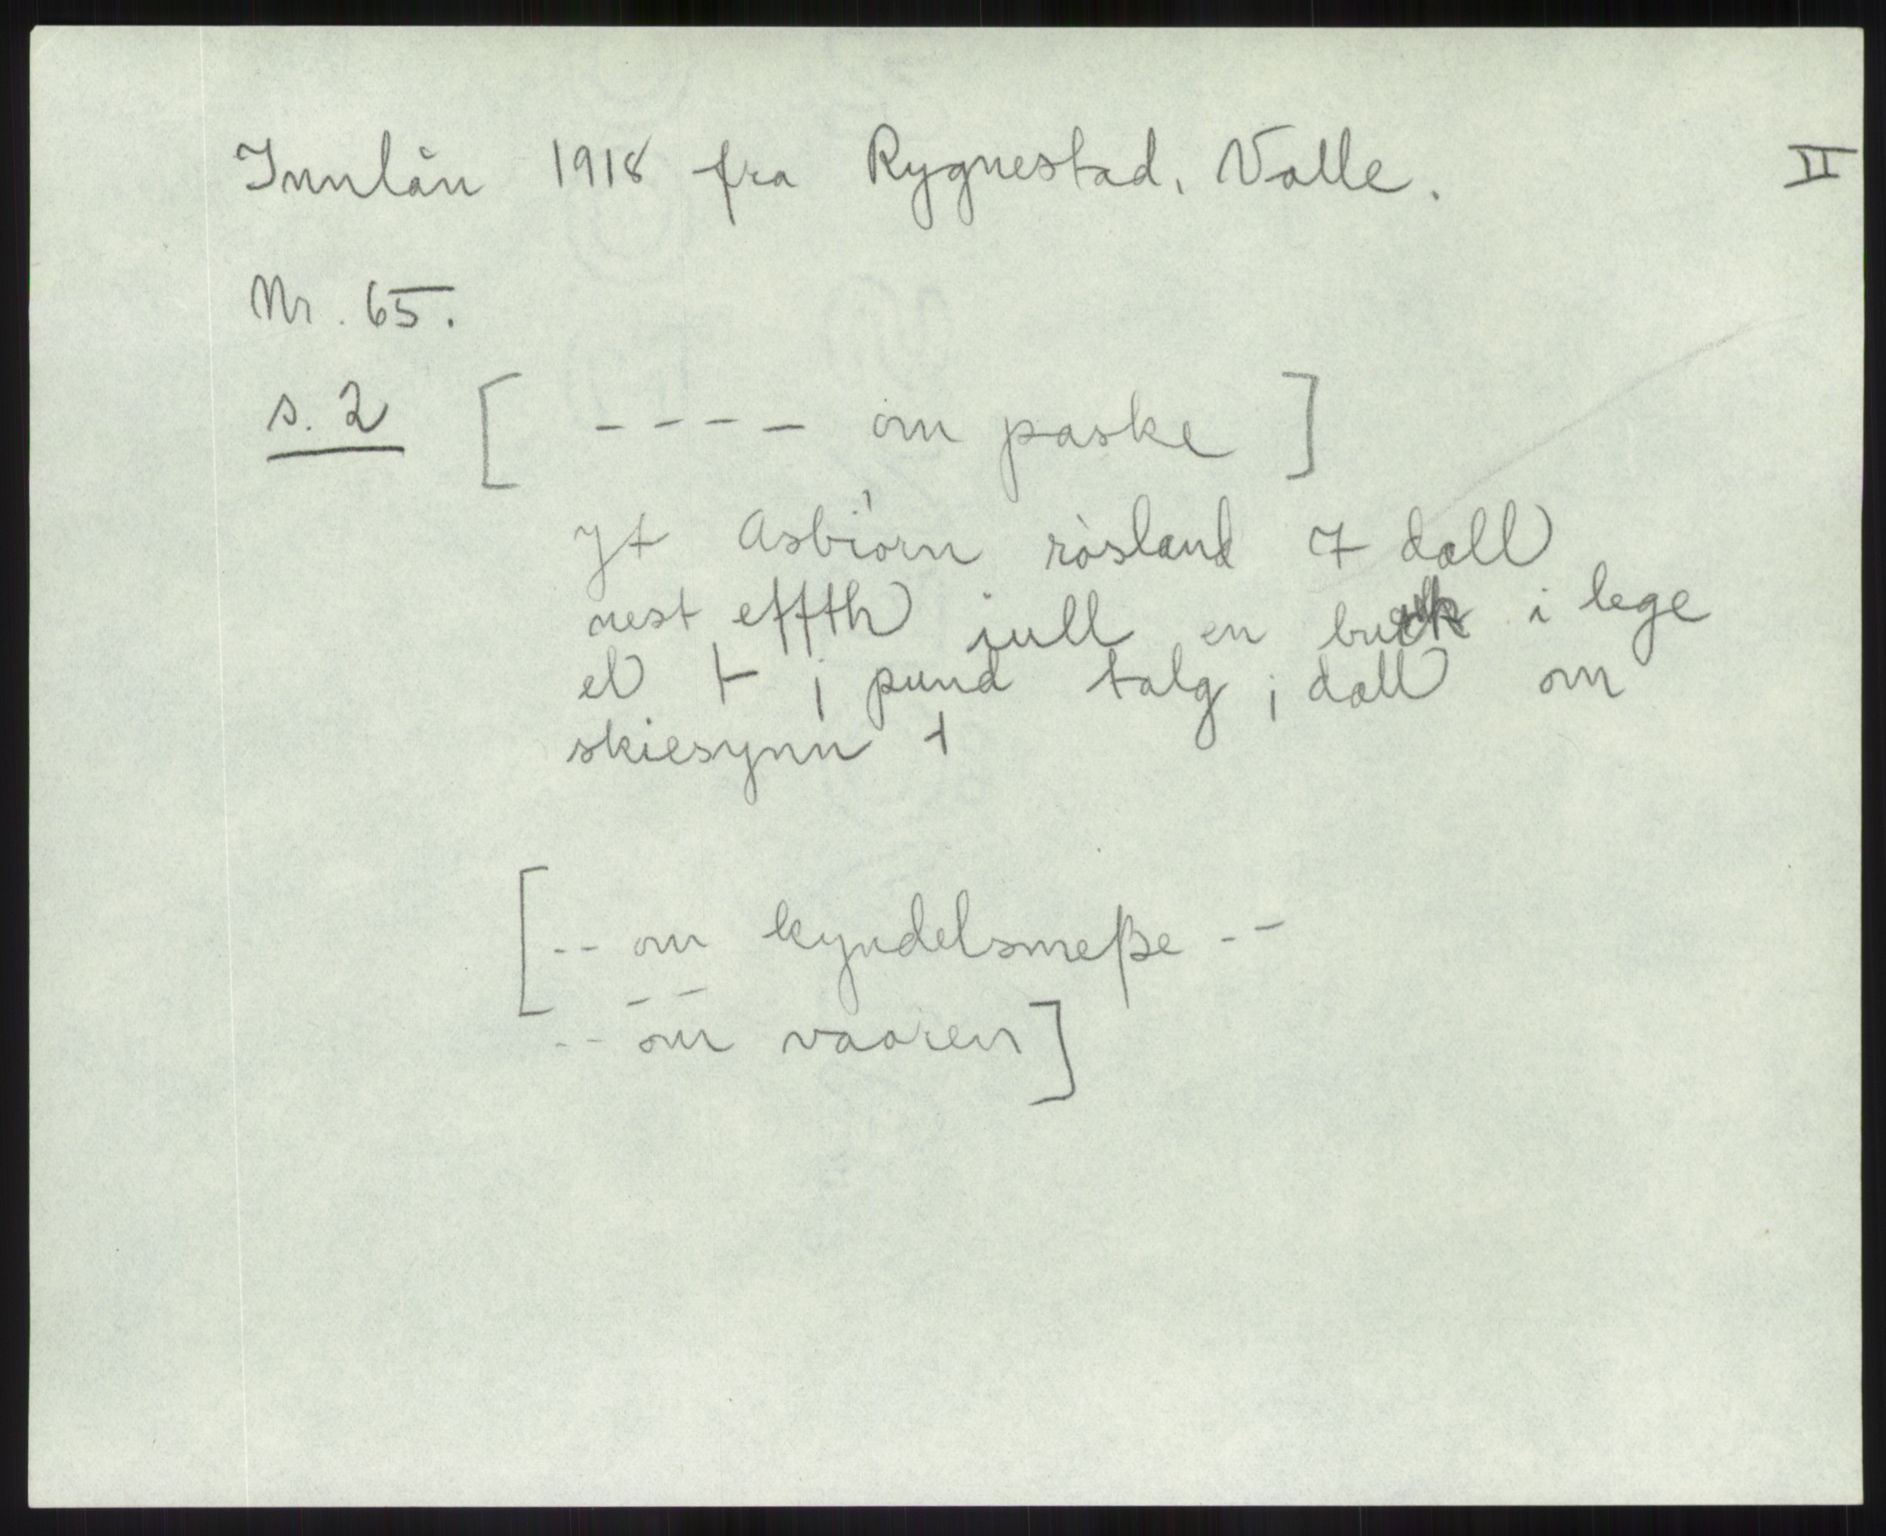 Innlån 1918 fra Rygnestad, Valle. II
Nr. 65.
s. 2 [ - - - - om paske ]
Jt Asbiørn røsland 7 dall
nest effth jull en buck i lege
el j pund talg j dall om
skiesynn
[ -- om kyndelsmeße --
- -
-- om vaaren ]